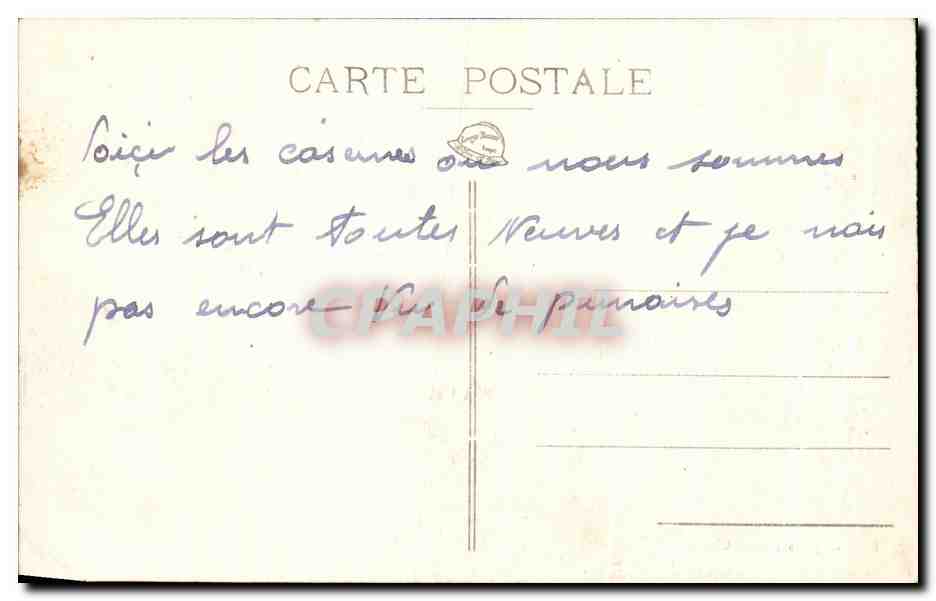 CARTE POSTALE
Voiçi les casernes ou nous sommes
Elles sont toutes Neuves et je nais
pas encore Vus de punaises
CPAPHIL